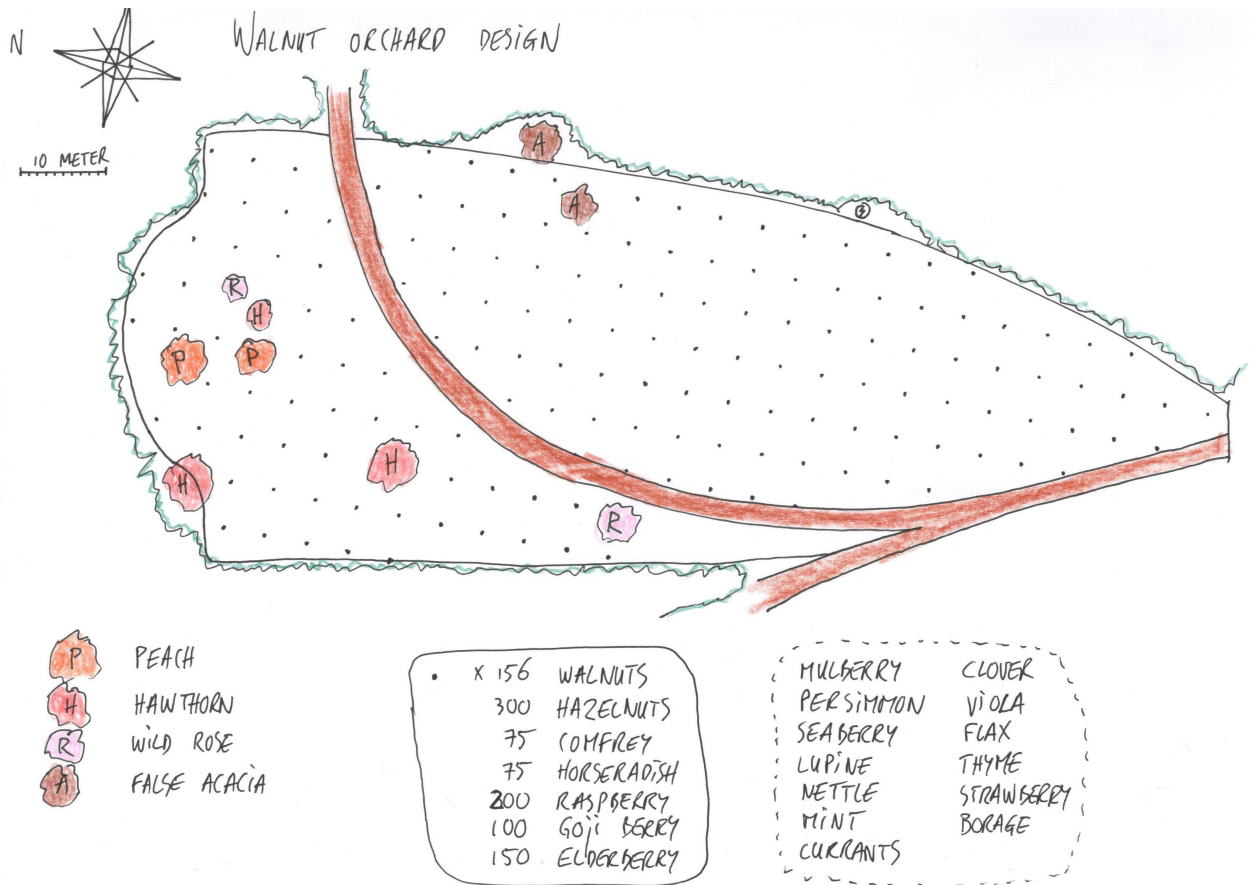 N
WALNUT ORCHARD DESIGN
10 METER
A
A
R
H
P P
H
H
R
P PEACH
H HAWTHORN
R WILD ROSE
A FALSE ACACIA
x 156 WALNUTS
300 HAZELNUTS
75 COMFREY
75 HORSERADISH
200 RASPBERRY
100 GOJI BERRY
150 ELDERBERRY
MULBERRY
PERSIMMON
SEABERRY
LUPINE
NETTLE
MINT
CURRANTS
CLOVER
VIOLA
FLAX
THYME
STRAWBERRY
BORAGE